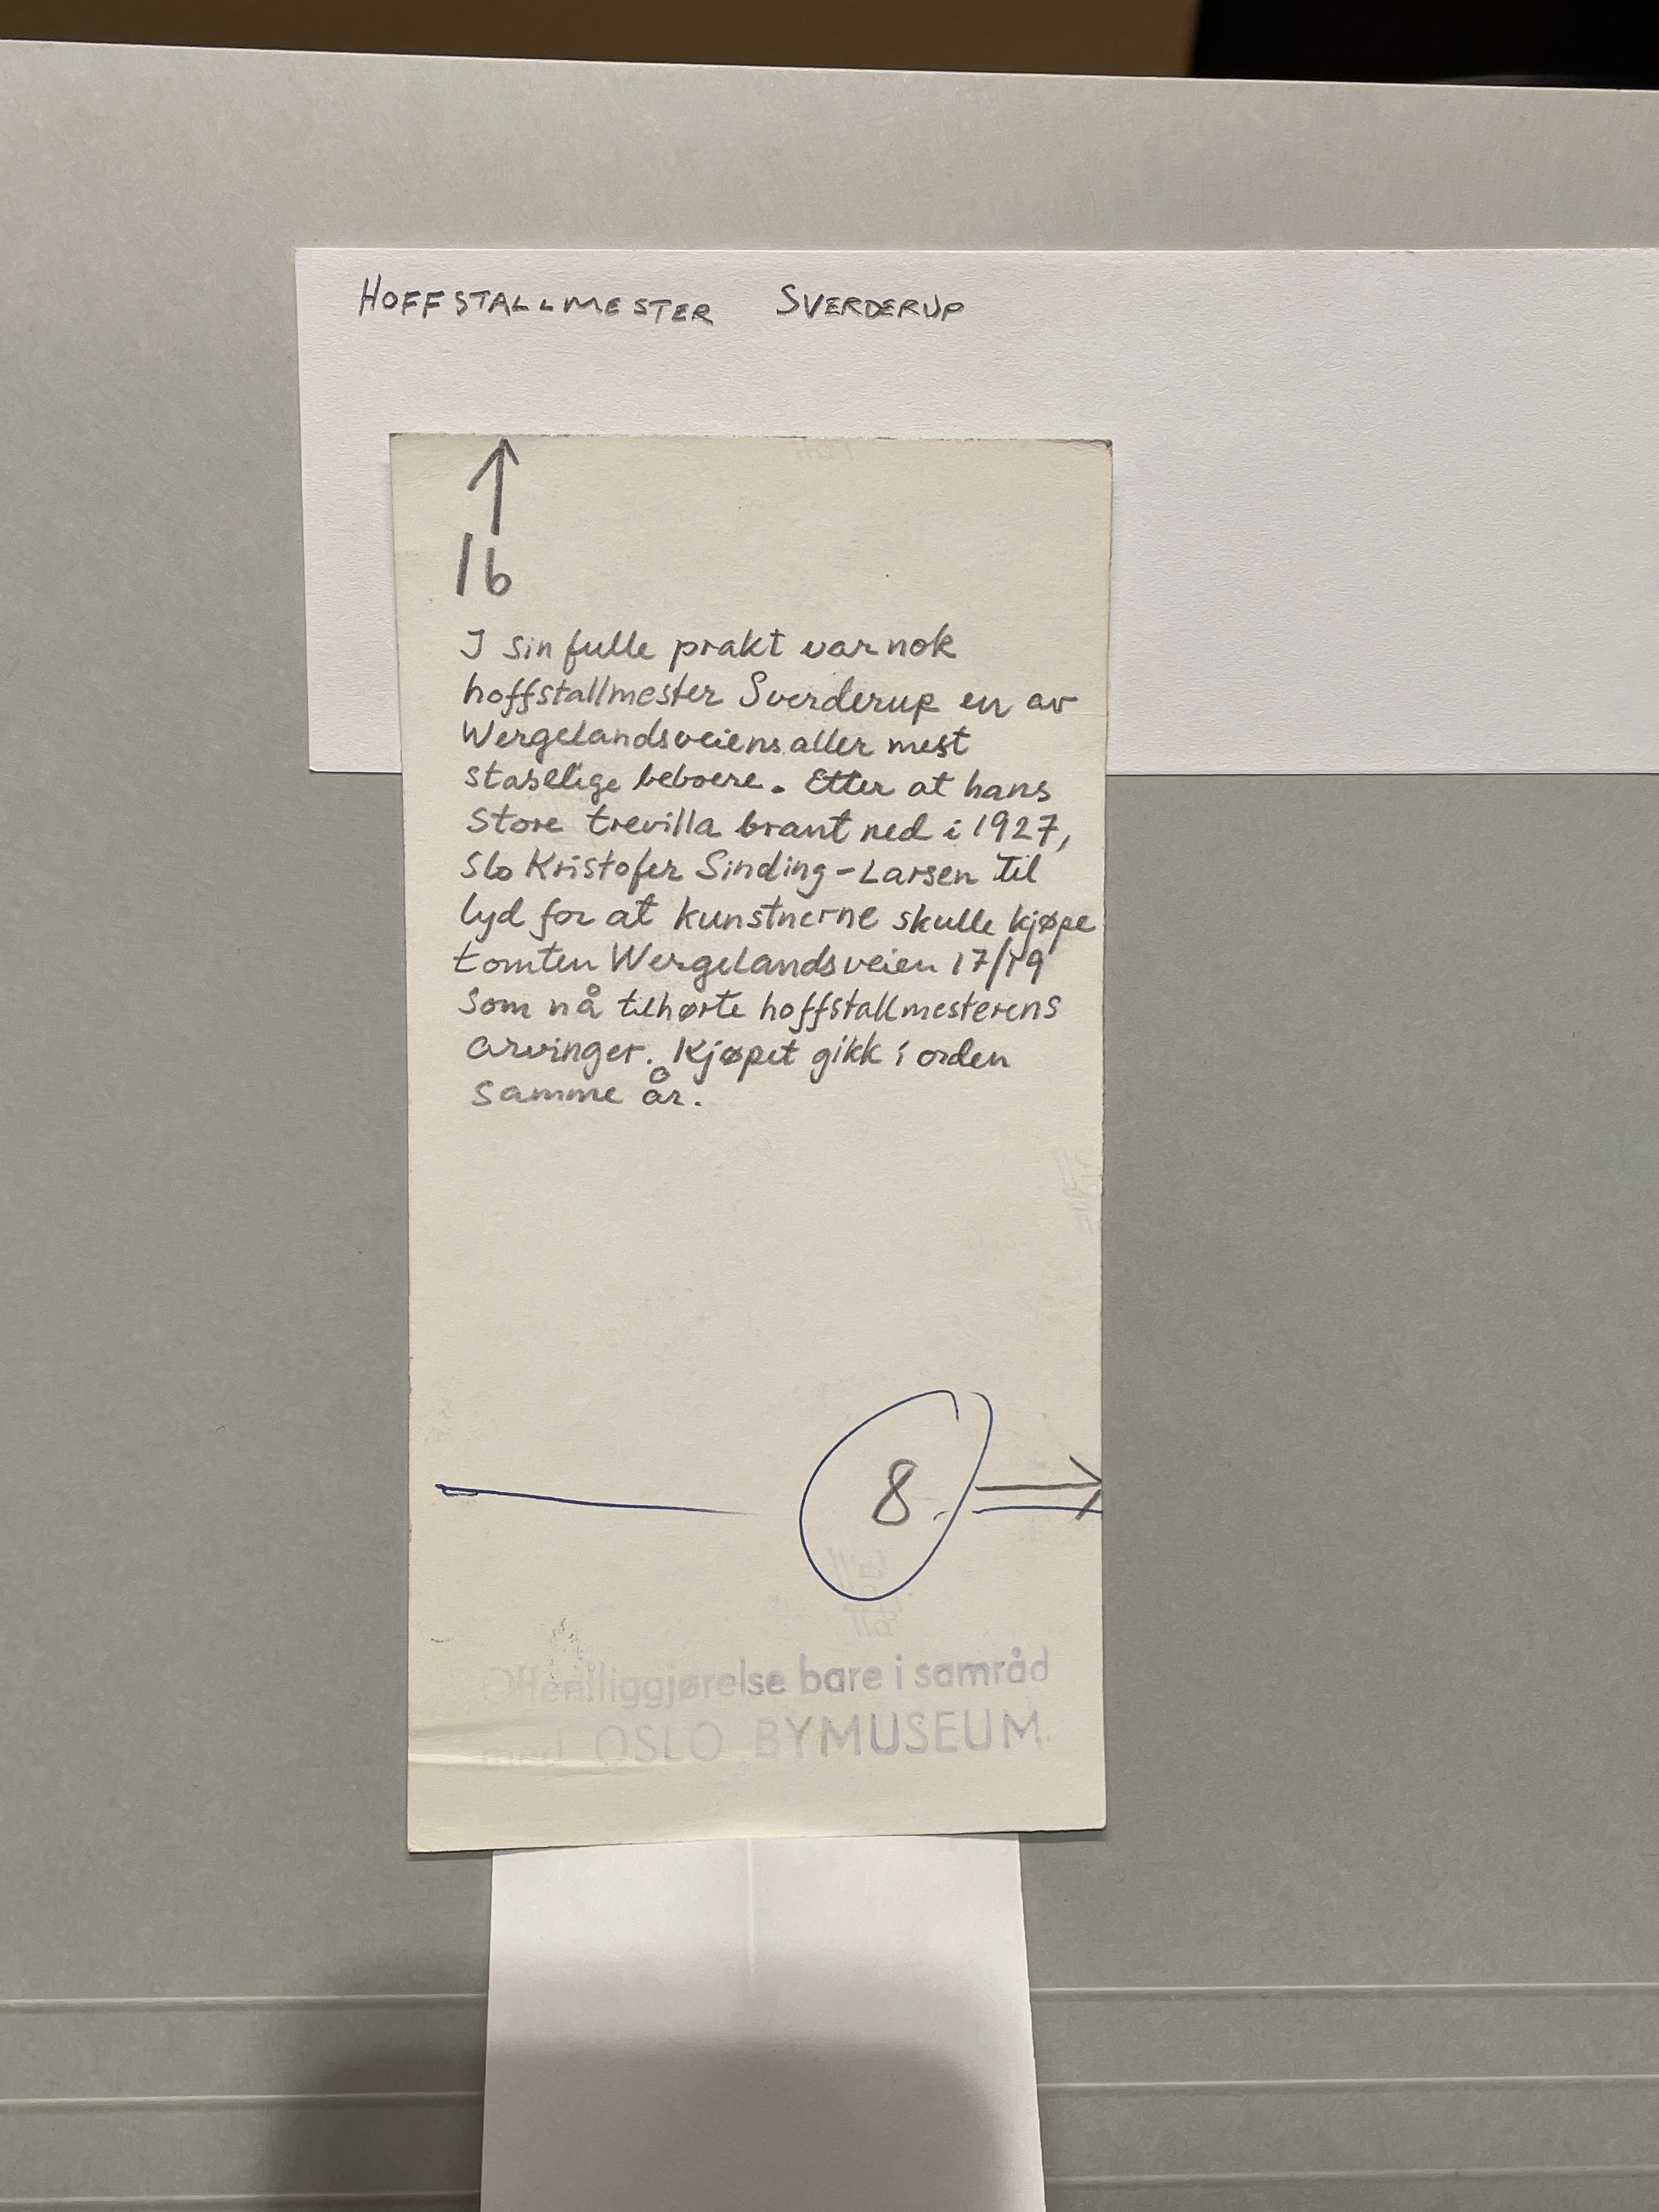 HOFFSTALLMESTER SVERDERUP
16
I sin fulle prakt var nok
hoffstallmester Sverderup en av
Wergelandsveiens aller mest
staselige beboere. Etter at hans
store trevilla brant ned i 1927,
slo Kristofer Sinding-Larsen til
lyd for at kunstnerne skulle kjøpe
tomten Wergelandsveien 17/19
som nå tilhørte hoffstallmesterens
arvinger. Kjøpet gikk i orden
samme år.
8
Offentliggjørelse bare i samråd
med OSLO BYMUSEUM